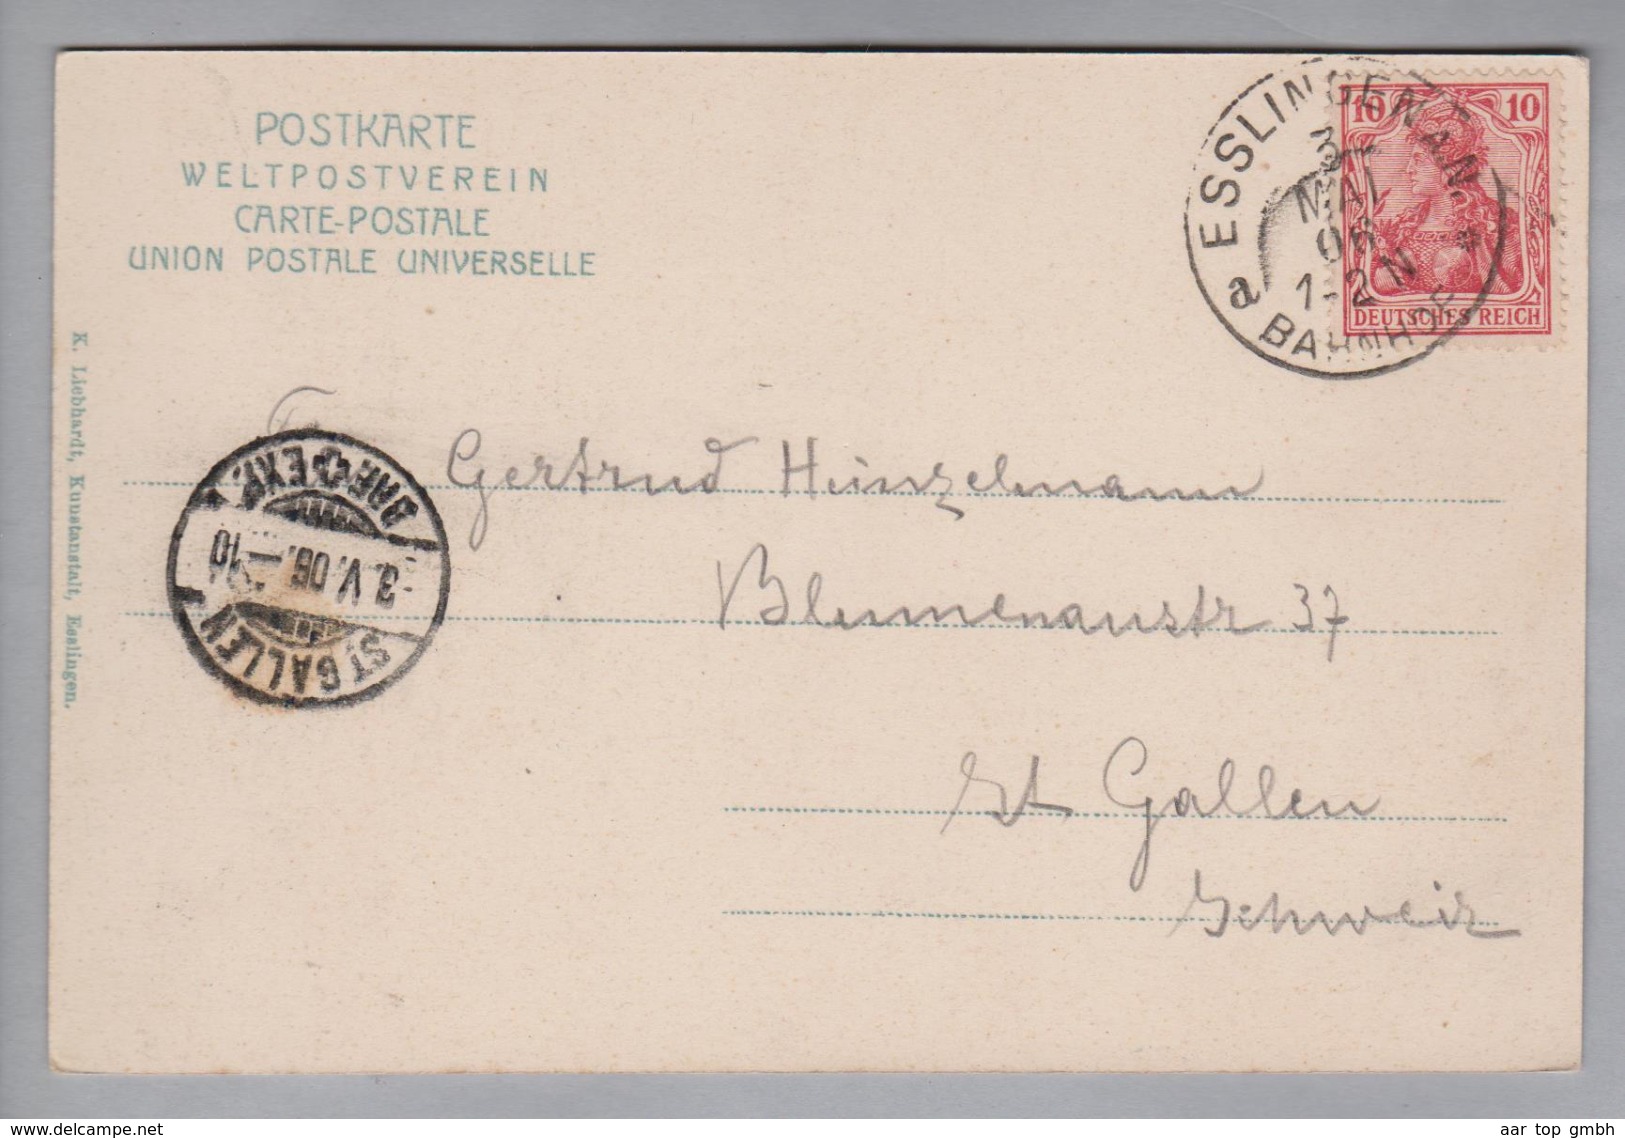 POSTKARTE
WELTPOSTVEREIN
CARTE-POSTALE
UNION POSTALE UNIVERSELLE
K. Liebhardt, Kunstanstalt, Esslingen.
10 10
DEUTSCHES REICH
ESSLINGEN A N
3
MAI
06
1-2 N
a BAHNHOF *
Gertrud Heinzelmann
Blumenaustr 37
St Gallen
Schweiz
ST GALLEN
3. V. 06. — 10
BRF. EXP.
delcampe.net
aar top gmbh